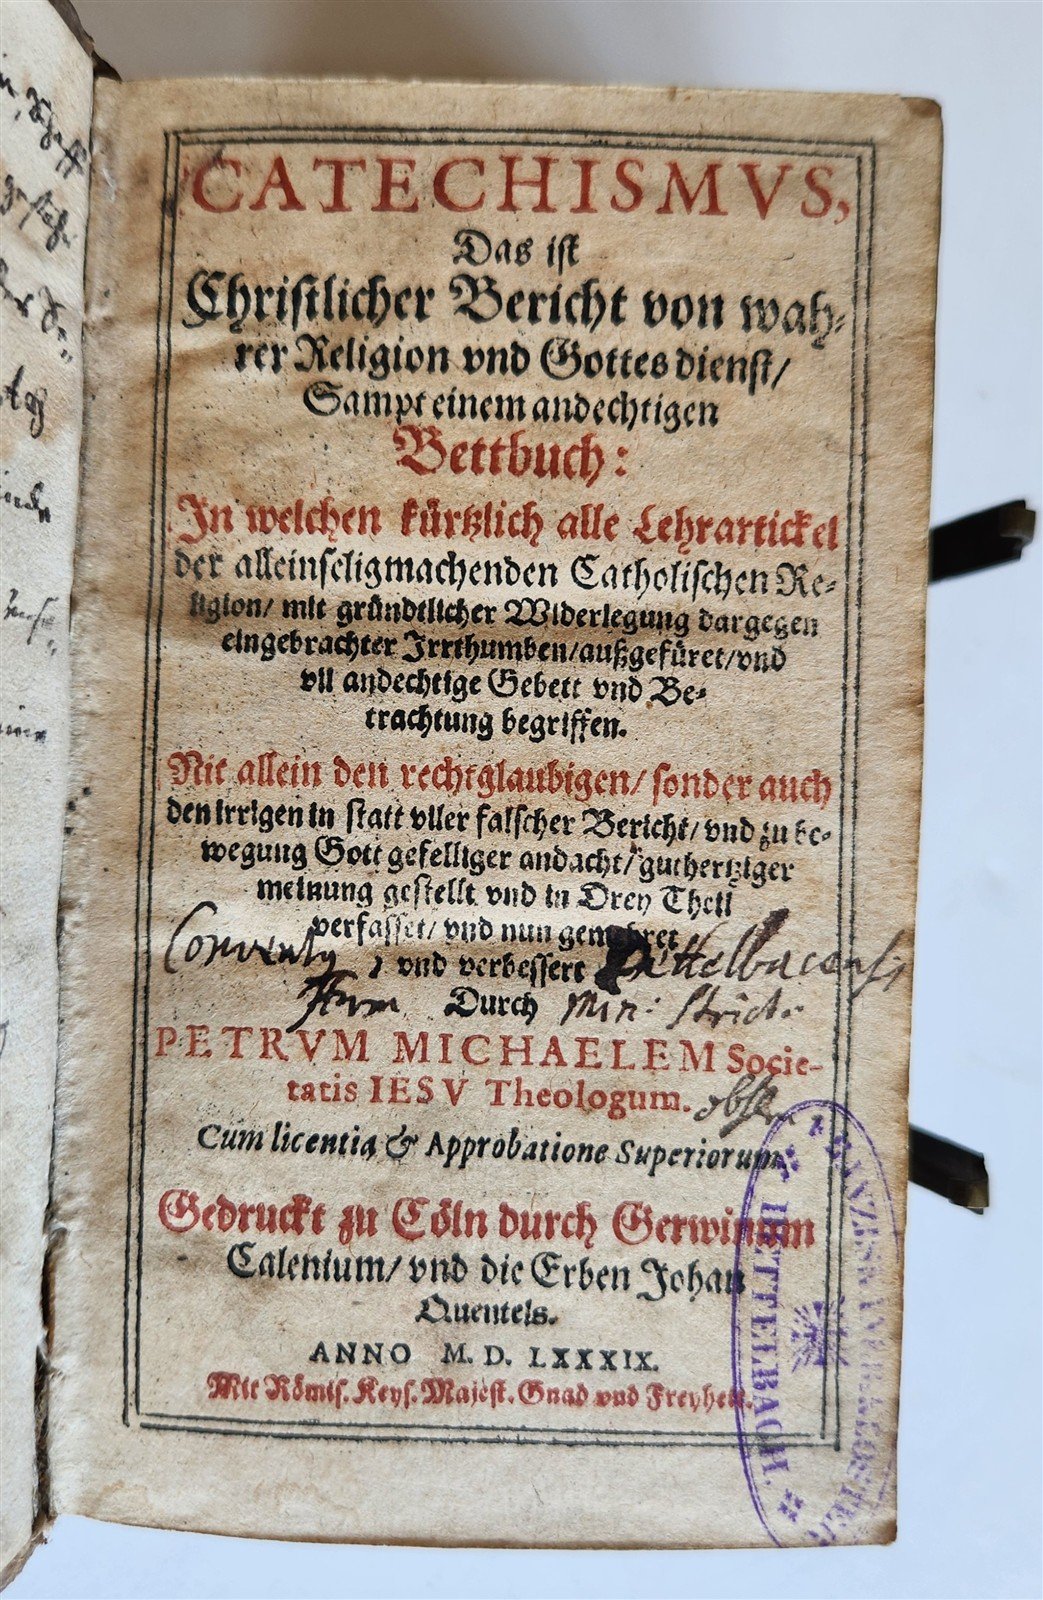 CATECHISMVS,
Das ist
Christlicher Bericht von wah-
rer Religion vnd Gottes dienst/
Sampt einem andechtigen
Bettbuch:
In welchen kürtzlich alle Lehrartickel
der alleinseligmachenden Catholischen Re-
ligion/ mit gründtlicher Widerlegung dargegen
eingebrachter Irrthumben/außgefüret/vnd
vil andechtige Gebett vnd Be-
trachtung begriffen.
Nit allein den rechtglaubigen/ sonder auch
den irrigen in statt viler falscher Bericht/ vnd zu be-
wegung Gott gefelliger andacht/ guthertziger
meinung gestellt vnd in Drey Theil
verfasset/ vnd nun gemehret
Conventus
vnd verbessert
Dettelbacensis
Durch
Min: Strict.
PETRVM MICHAELEM Socie-
tatis IESV Theologum.
obser.
Cum licentia & Approbatione Superiorum
Gedruckt zu Cöln durch Gerwinum
Calenium/ vnd die Erben Johan
Quentels.
ANNO M. D. LXXXIX.
Mit Römis. Keys. Majest. Gnad vnd Freyheit.
DETTELBACH.